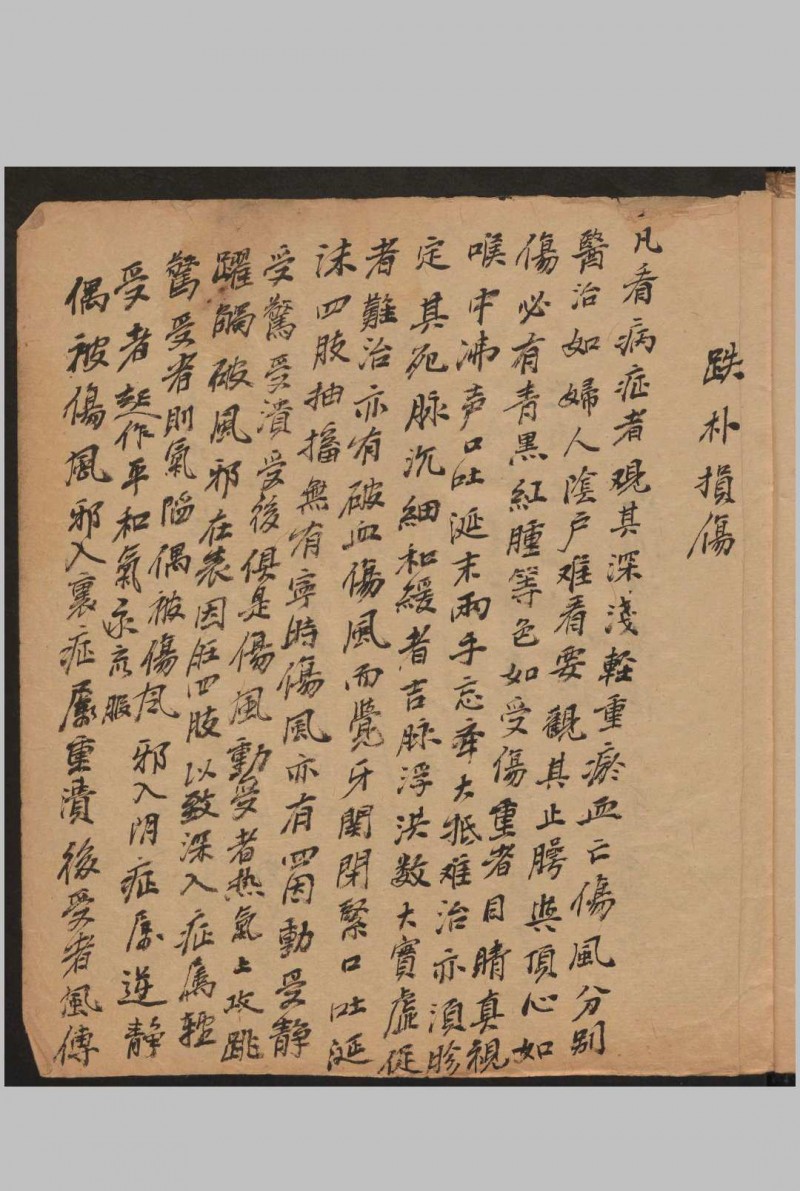 跌朴損傷
凡看病症者观其深淺輕重瘀血亡傷風分别
醫治如婦人陰户难看要觀其止腭與頂心如
傷必有青黑紅腫等色如受傷重者目睛真視
喉中沸声口吐涎末兩手忘牽大抵难治亦湏胗
定其死脉沉細和緩者吉脉浮洪数大實虚促
者難治亦有破血傷風而覺牙関閉緊口吐涎
沫四肢抽搐無有寧時傷風亦有四因動受静
受驚受潰受後俱是傷風動受者热氣上攻跳
躍觸破風邪在表因在四肢以致深入症属輕
驚受者則氣陷偶被傷风邪入阴症属逆静
受者起作平和氣
偶被傷風邪入裏症属重潰後受者風傳